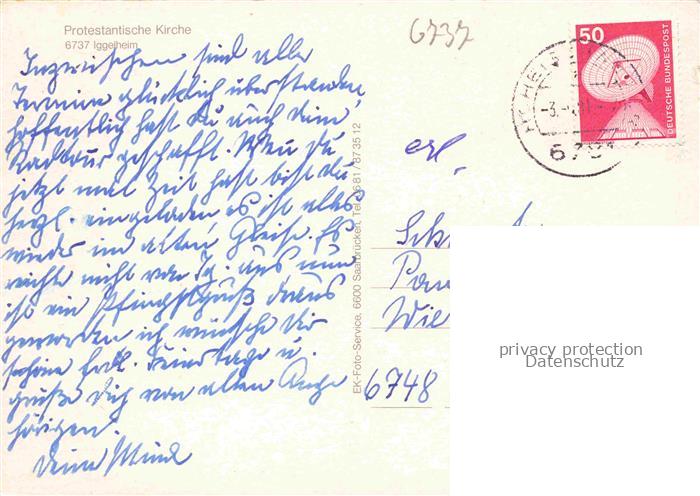 Protestantische Kirche
6737 Iggelheim
6737
50
DEUTSCHE BUNDESPOST
Inzwischen sind alle
Termine glücklich überstanden,
hoffentlich hast du auch deine
Radtour geschafft. Wenn du
jetzt mal Zeit hast bist du
herzl. eingeladen, es ist alles
wieder im alten Gleise. Es
reichte nicht von Ig. aus nun
ist ein Pfingstgruß draus
geworden ich wünsche Dir
schöne Feiertage u.
grüße Dich von allen Ange
hörigen.
Deine
EK-Foto-Service, 6600 Saarbrücken, Tel. 0681/873512
6748
privacy protection
Datenschutz